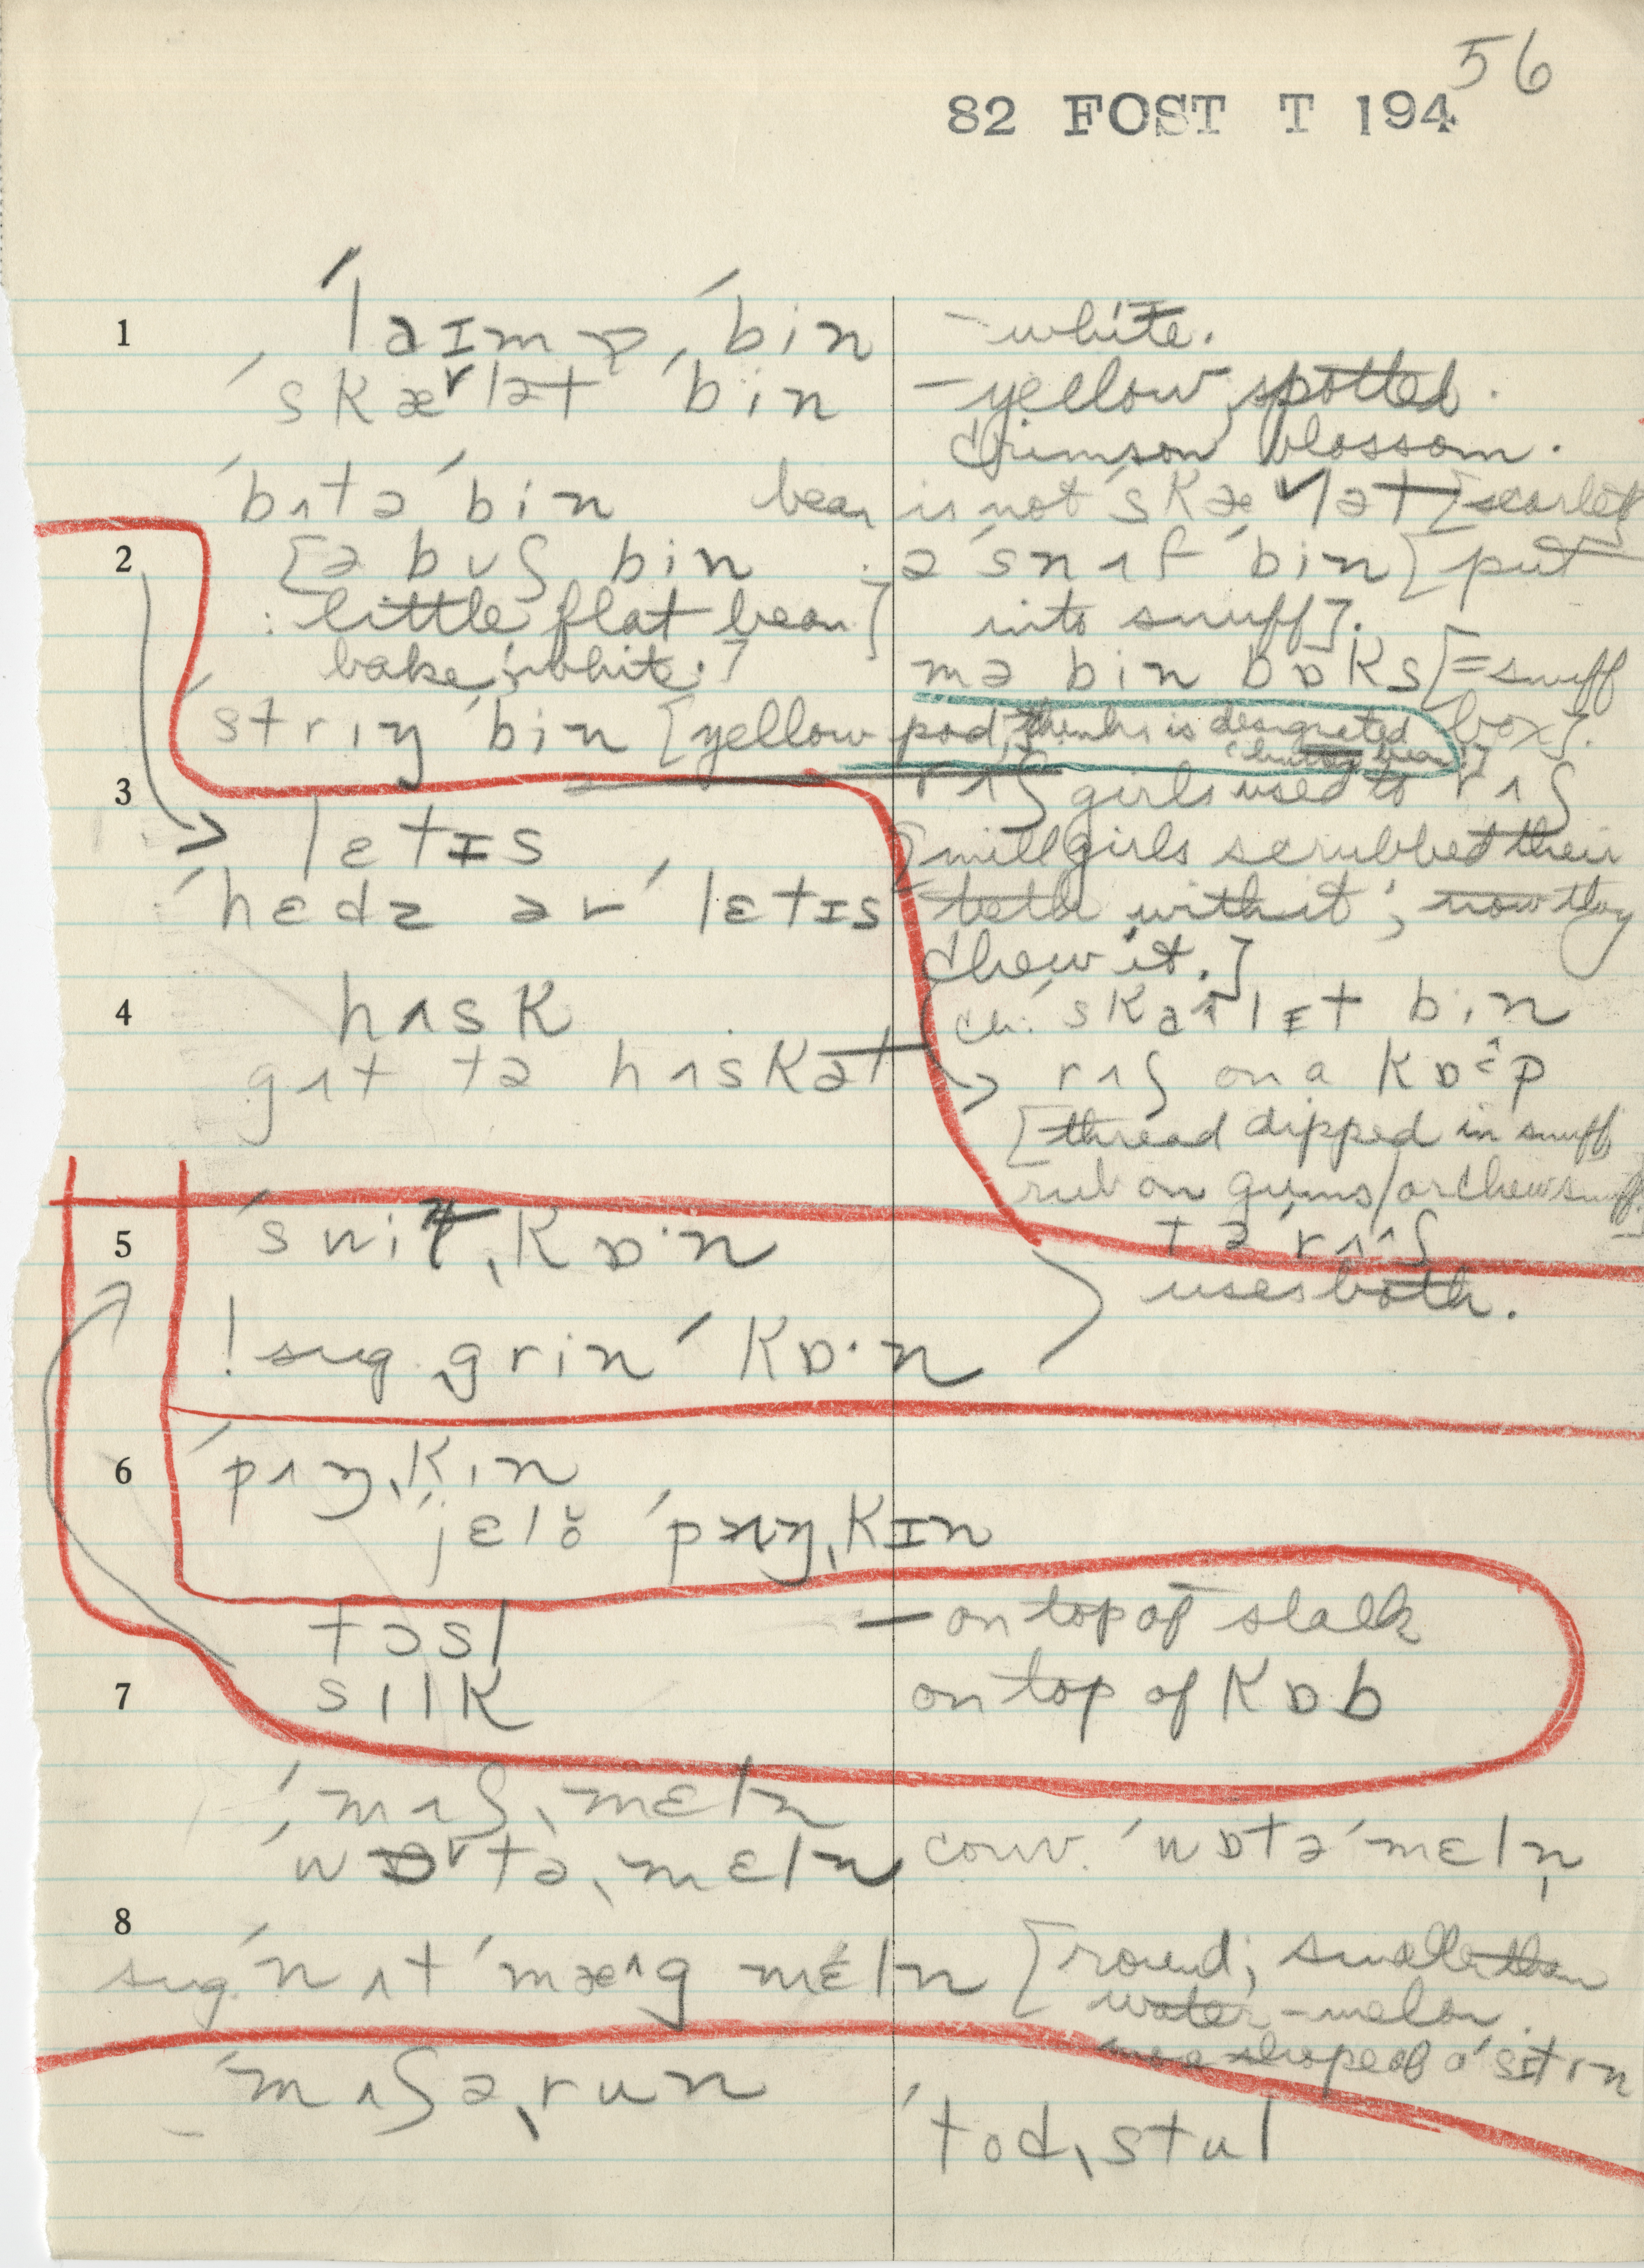 56
82 FOST T 194
1 ˈlaɪmp ˈbin – white.
ˈskæʳlət ˈbin – yellow, spotted.
crimson blossom.
ˈbʌtə ˈbin bean is not ˈskæʳlət [scarlet]
2 [ə buʃ bin ə ˈsnʌf ˈbin [put
: little flat bean] into snuff].
bake; white.] mə bin bɒks [= snuff
ˈstrɪŋ ˈbin [yellow pod, thinks is designated box].
bean]
3 rʌʃ girls used to rʌʃ
lɛtɪs [mill girls scrubbed their
ˈhɛdz ər ˈlɛtɪs teeth with it; now they
chew it.]
4 hʌsk ˈskaɾlɪt bin
gɪt tə hʌskət → rʌʃ on a
[thread dipped in snuff
rub on gums/or chew snuff.]
5 ˈswit ˌkɒ·n tə ˈrʌʌʃ
uses both.
! sug. grin ˈkɒ·n
6 ˈpʌŋˌkɪn
ˈjɛlo ˈpʌŋˌkɪn
tɔsl – on top of stalk
7 sɪlk on top of kɒb
ˈmʌʃˌmɛln
ˈwɒʳtəˌmɛln conv. ˈwɒtə ˈmɛln̩
8
sug. ˈnʌtˈmæᶺg mɛln [round; smaller than
water-melon.
shape of a ˈsɪtrn
ˈmʌʃəˌrun
ˈtodˌstul